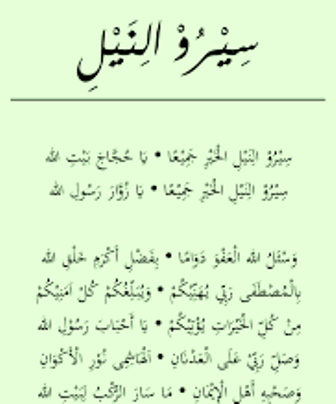 سِيْرُوْ النَيْلِ
سِيْرُوْ النَيْلِ الْخَيْرِ جَمِيْعًا • يَا حُجَّاجَ بَيْتِ الله
سِيْرُوْ النَيْلِ الْخَيْرِ جَمِيْعًا • يَا زُوَّارَ رَسُولِ الله
وَسْئَلُ الله الْعَفْوَ دَوَامًا • بِفَضْلِ أَكْرَمِ خَلْقِ الله
بِالْمُصْطَفَى رَبِّي يُهَنِّيْكُمْ • وَيُبَلِّغُكُمْ كُلَّ اَمَنِيْكُمْ
مِنْ كُلِّ الْخَيْرَاتِ يُؤْتِيْكُمْ • يَا أَحْبَابَ رَسُوْلِ الله
وَصَلِّ رَبِّيْ عَلَى الْعَدْنَانِ • اَلْهَاشِمِى نُوْرِ الْأَكْوَانِ
وَصَحْبِهِ أَهْلِ الْإِيْمَانِ • مَا سَارَ الرَّكْبُ لِبَيْتِ الله